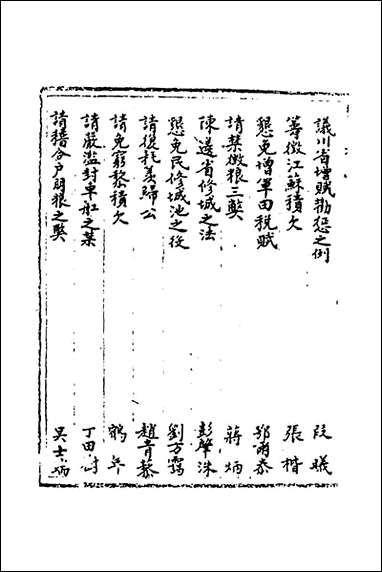 議川省增賦勸懲之例 段曦
籌徵江蘇積欠 張楷
懇免增軍田税賦 鄂爾泰
請禁徵粮三獘 蔣炳
陳邊省修城之法 彭肇洙
懇免民修城池之役 劉方靄
請復耗羡歸公 趙青藜
請免窮黎積欠 鶴年
請嚴濫封車舡之禁 丁田澍
請穑合户朋粮之獘 吴士